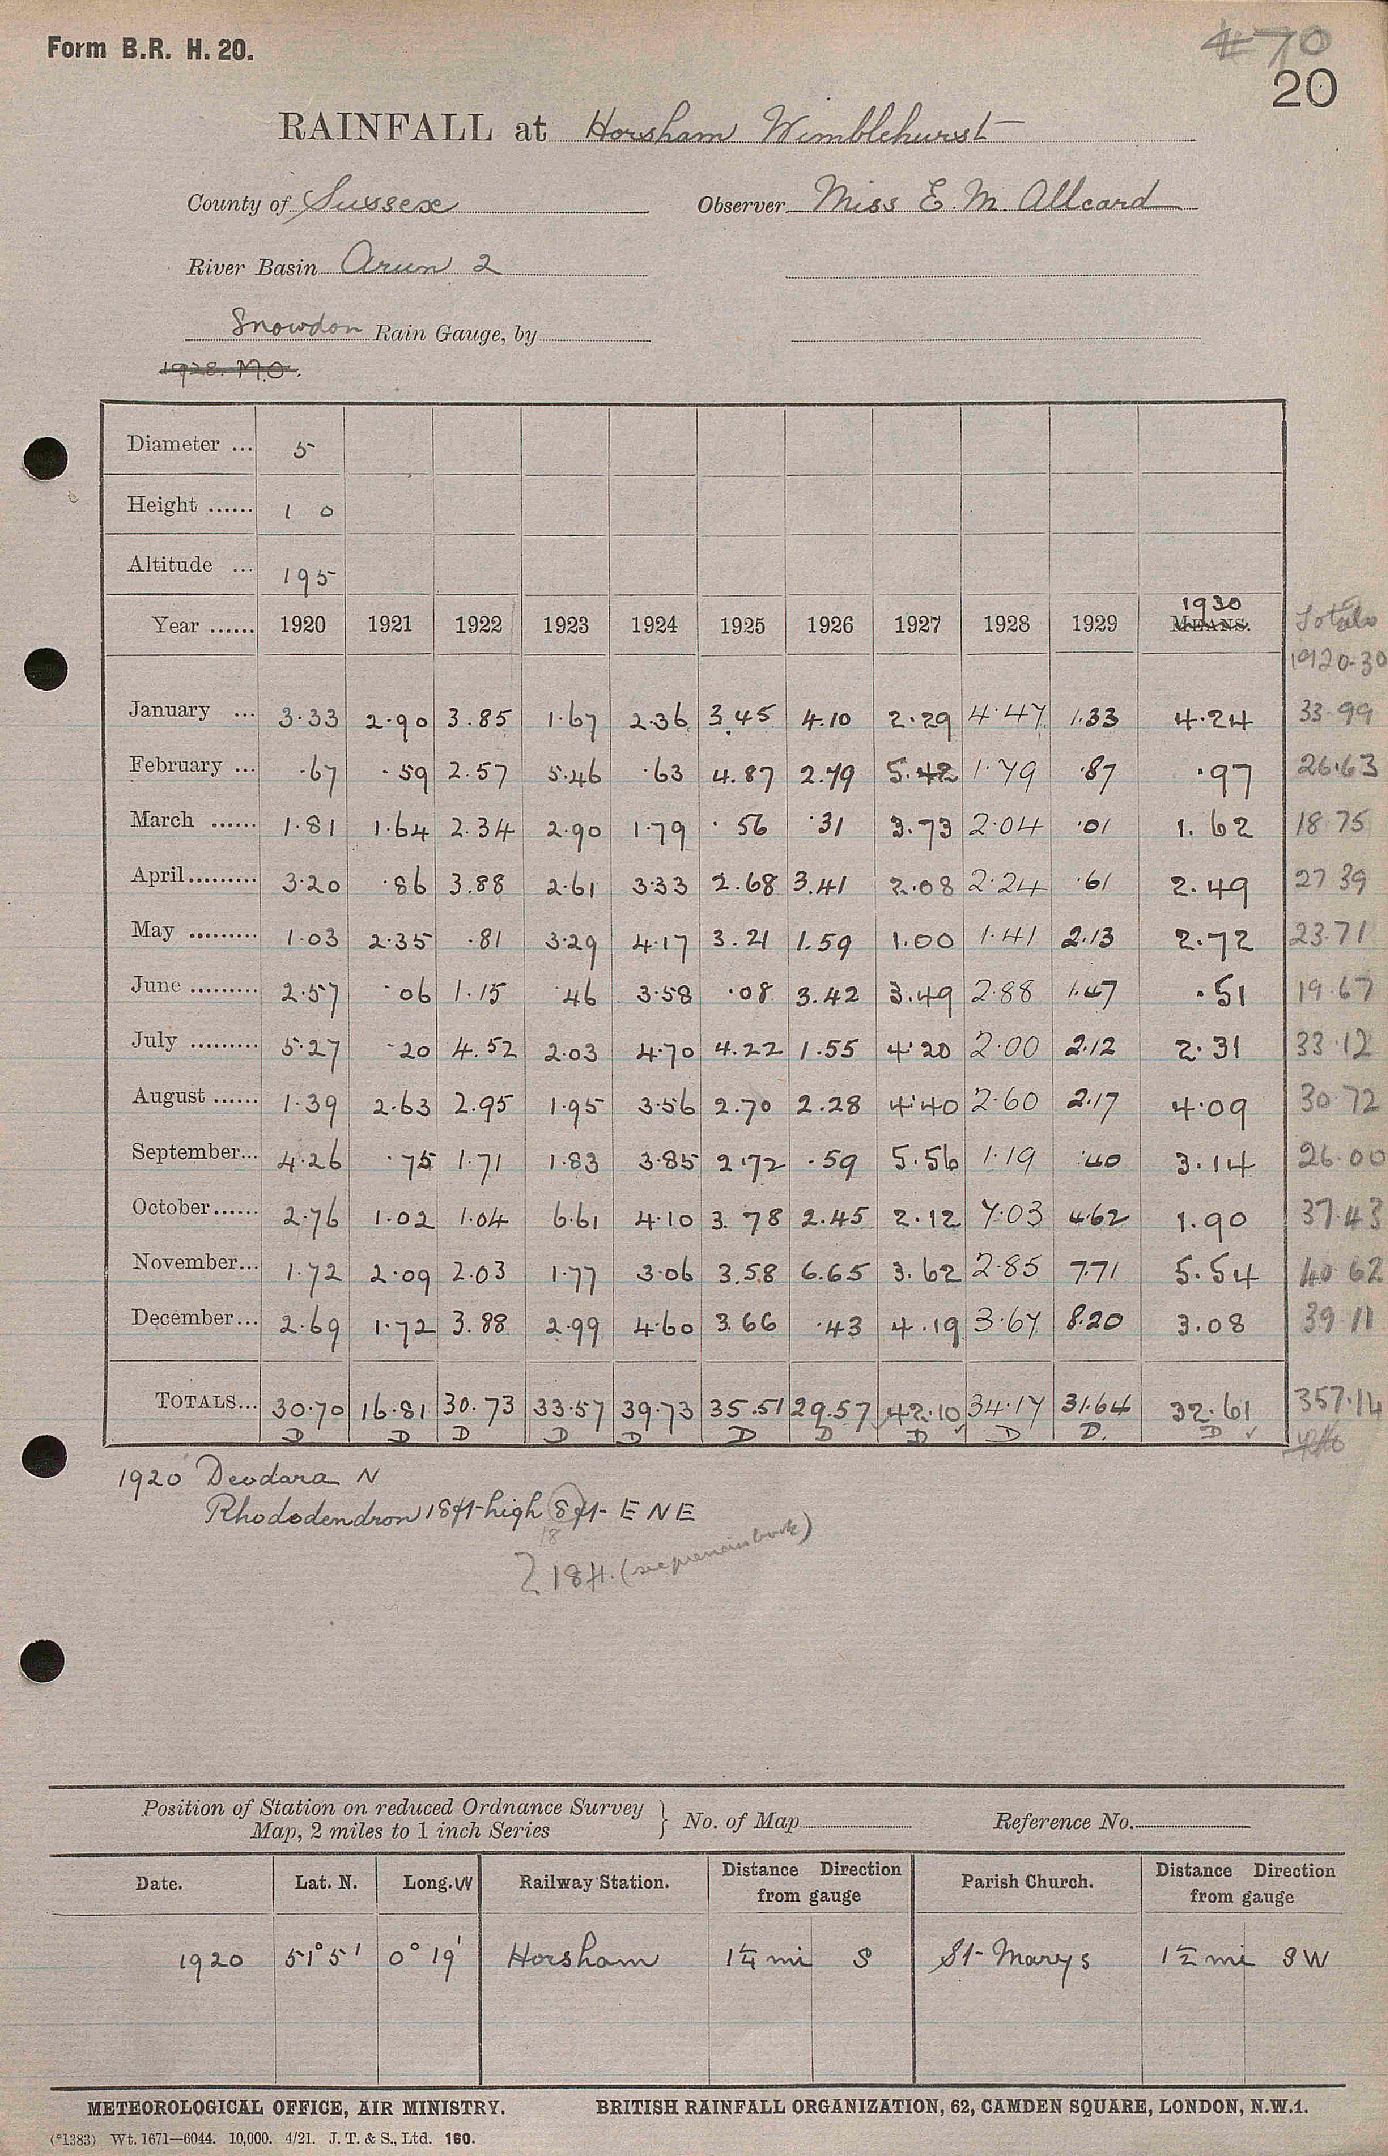 Form B.R. H. 20.
70
20
RAINFALL at Horsham Wimblehurst
County of Sussex Observer Miss E. M. Allcard
River Basin Arun 2
Snowdon Rain Gauge, by
1928. M.O.
Diameter ... 5
Height ...... 1 0
Altitude ... 195
1930
Year ...... 1920 1921 1922 1923 1924 1925 1926 1927 1928 1929 MEANS. Totals
1920-30
January ... 3.33 2.90 3.85 1.67 2.36 3.45 4.10 2.29 4.47 1.33 4.24 33.99
February ... .67 .59 2.57 5.46 .63 4.87 2.79 5.42 1.79 .87 .97 26.63
March ...... 1.81 1.64 2.34 2.90 1.79 .56 .31 3.73 2.04 .01 1.62 18.75
April ......... 3.20 .86 3.88 2.61 3.33 2.68 3.41 2.08 2.24 .61 2.49 27.39
May ......... 1.03 2.35 .81 3.29 4.17 3.21 1.59 1.00 1.41 2.13 2.72 23.71
June ......... 2.57 .06 1.15 .46 3.58 .08 3.42 3.49 2.88 1.47 .51 19.67
July ......... 5.27 .20 4.52 2.03 4.70 4.22 1.55 4.20 2.00 2.12 2.31 33.12
August ...... 1.39 2.63 2.95 1.95 3.56 2.70 2.28 4.40 2.60 2.17 4.09 30.72
September... 4.26 .75 1.71 1.83 3.85 2.72 .59 5.56 1.19 .40 3.14 26.00
October...... 2.76 1.02 1.04 6.61 4.10 3.78 2.45 2.12 7.03 4.62 1.90 37.43
November... 1.72 2.09 2.03 1.77 3.06 3.58 6.65 3.62 2.85 7.71 5.54 40.62
December... 2.69 1.72 3.88 2.99 4.60 3.66 .43 4.19 3.67 8.20 3.08 39.11
TOTALS... 30.70 16.81 30.73 33.57 39.73 35.51 29.57 42.10 34.17 31.64 32.61 357.14
D D D D D D D D D D. D
1920 Deodara N
Rhododendron 18ft high 8ft ENE
18
? 18 ft. (see previous book)
Position of Station on reduced Ordnance Survey
Map, 2 miles to 1 inch Series } No. of Map Reference No.
Date. Lat. N. Long. W Railway Station. Distance Direction from gauge Parish Church. Distance Direction from gauge
1920 51° 5' 0° 19' Horsham 1¼ mi S St Marys 1½ mi SW
METEOROLOGICAL OFFICE, AIR MINISTRY. BRITISH RAINFALL ORGANIZATION, 62, CAMDEN SQUARE, LONDON, N.W.1.
(*1383) Wt. 1671—6044. 10,000. 4/21. J. T. & S., Ltd. 160.